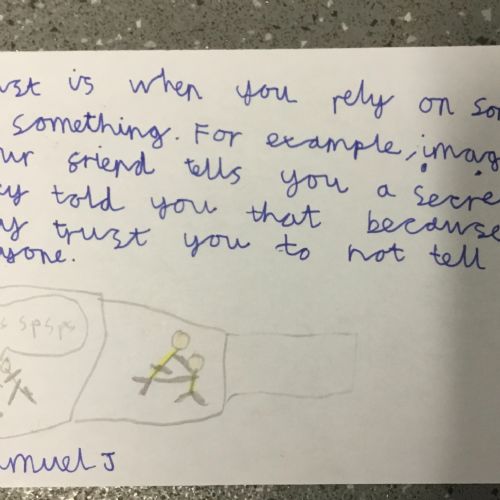 ust is when you rely on som
something. For example, imag
ur friend tells you a secre
ey told you that because
y trust you to not tell
yone.
s spsps
muel J